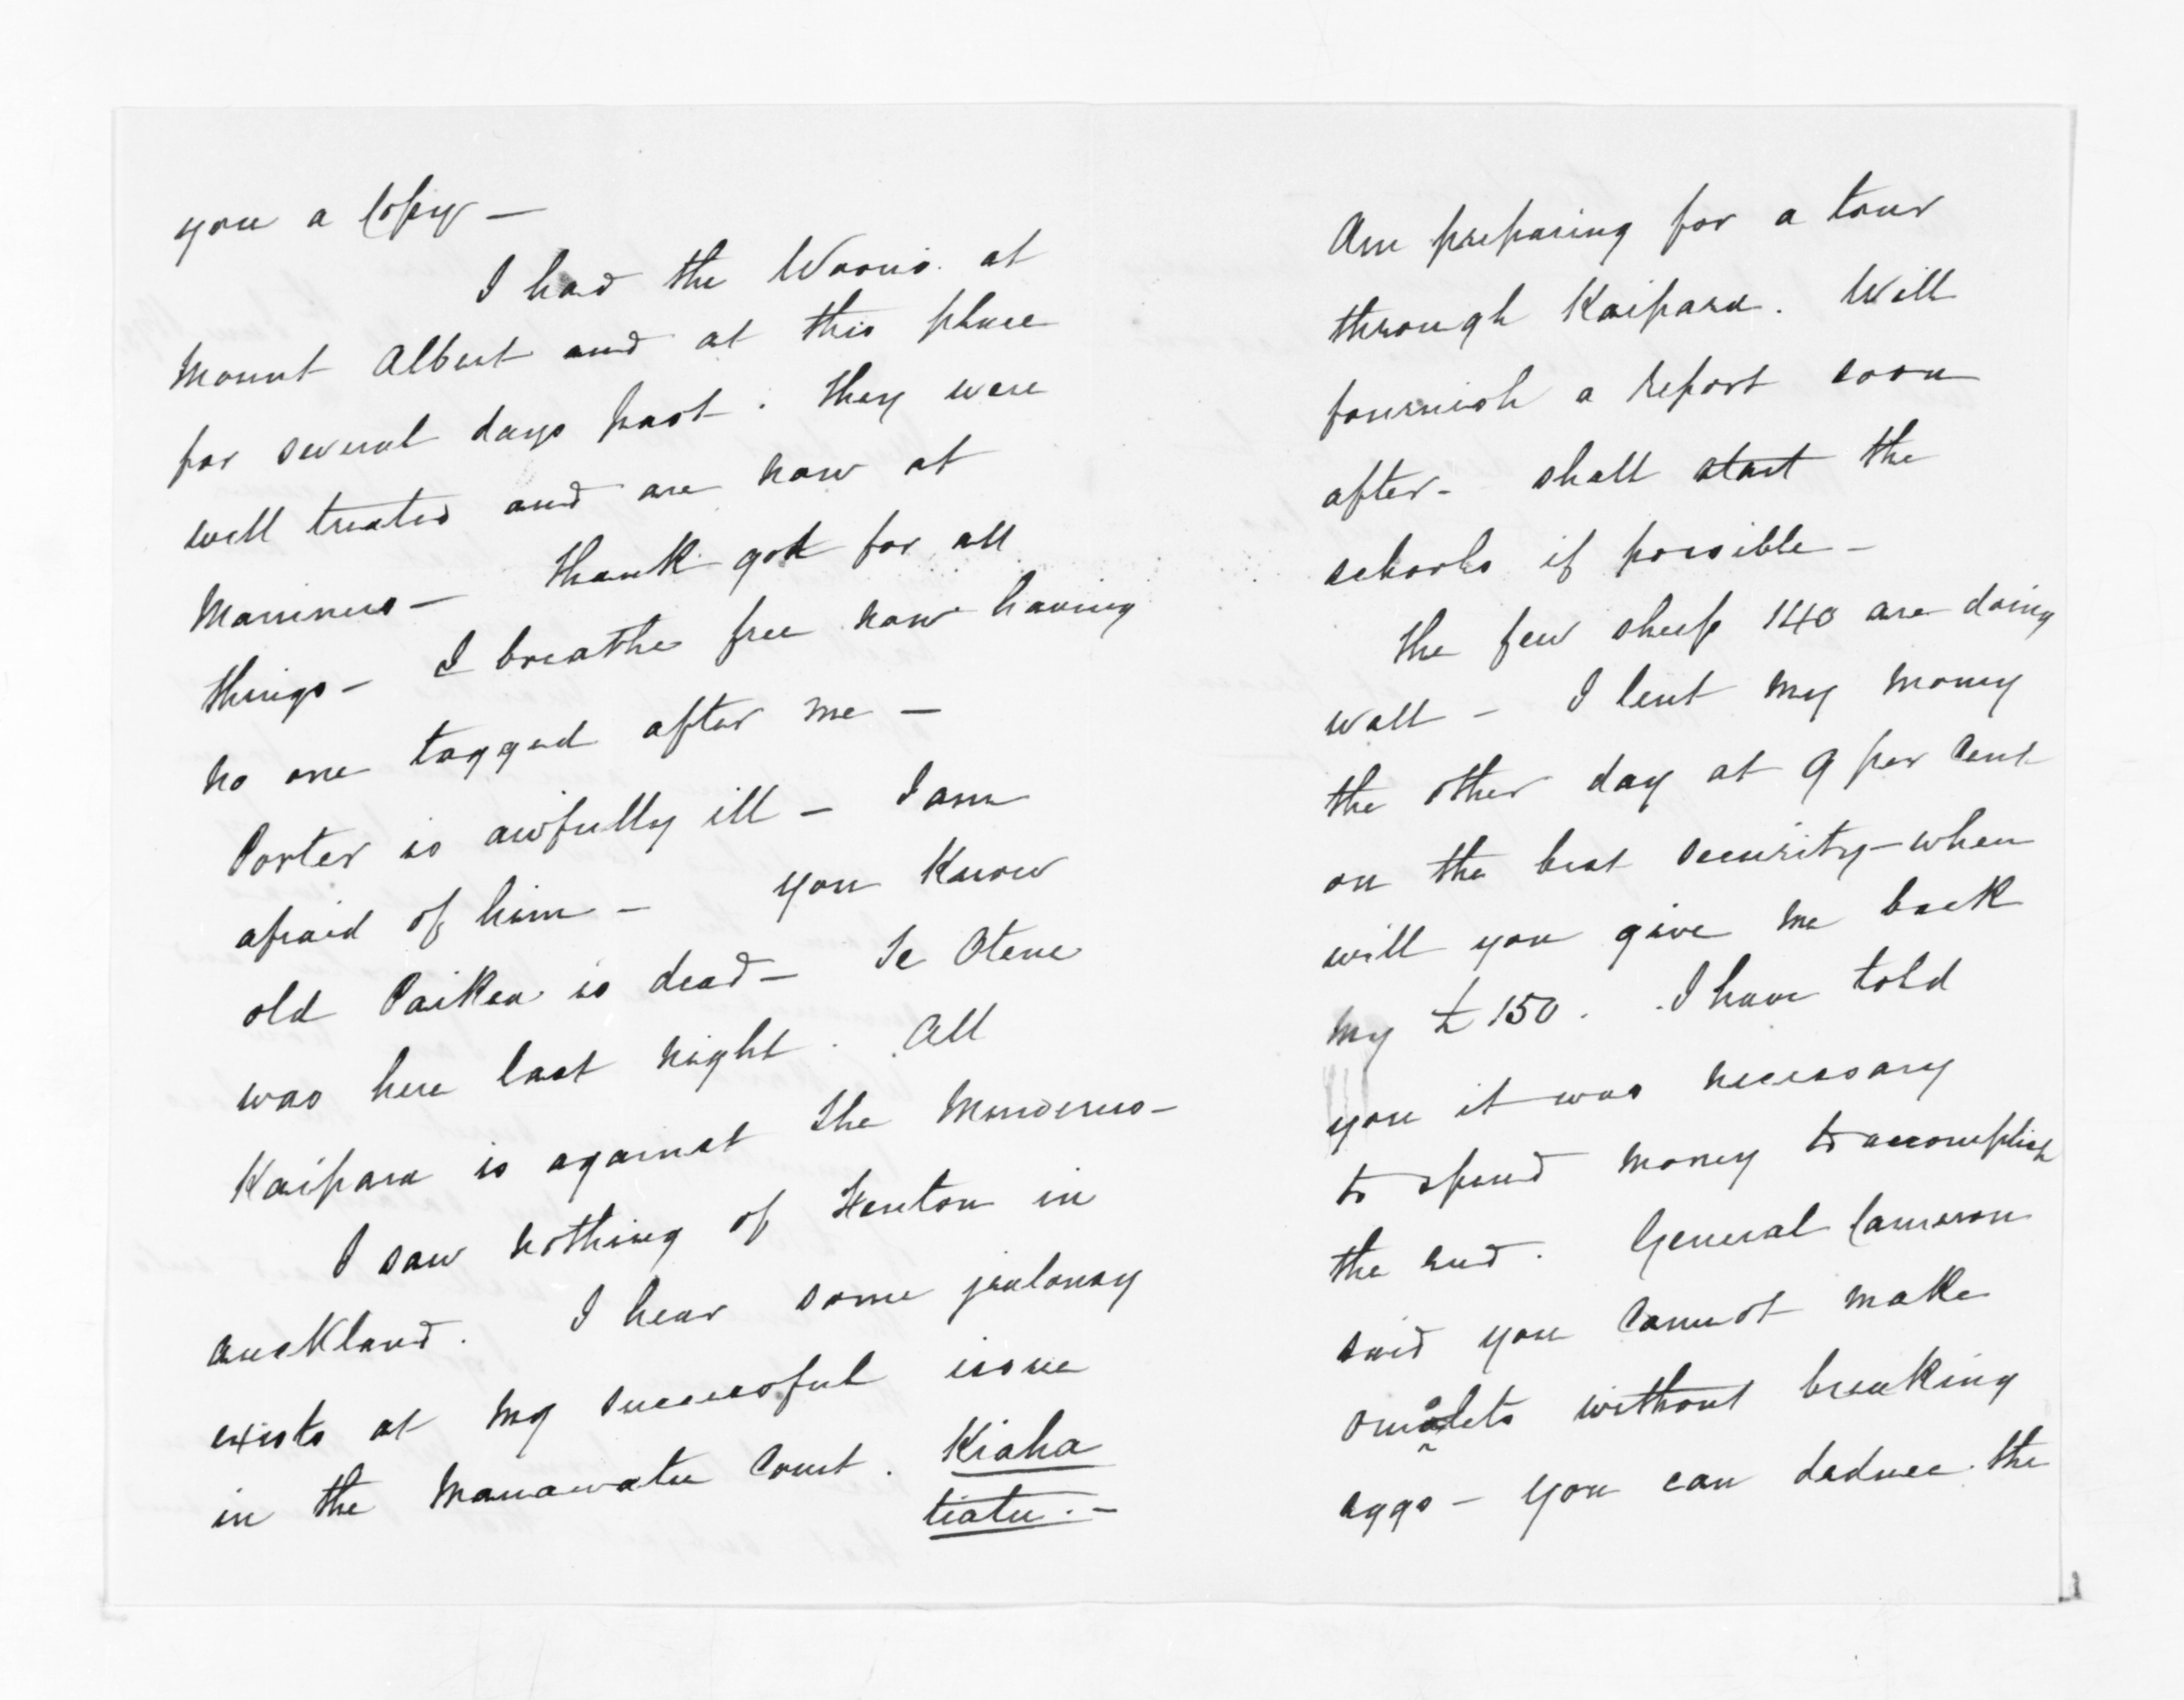 you a Copy —
I had the Waoris. at
Mount Albert and at this place
for several days past. They were
well treated and are now at
Manineus — Thank god for all
things — I breathe free now having
no one tagged after me —
Porter is awfully ill — I am
afraid of him — you know
old Paikea is dead — Te Otene
was here last night. All
Kaipara is against the Murderers —
I saw nothing of Fenton in
Auckland. I hear some jealousy
exists at my successful issue
in the Manawatu Court. Kiaha
tiatu. —
Am preparing for a tour
through Kaipara. Will
fournish a report soon
after — shall start the
schools if possible —
The few sheep 140 are doing
well — I lent my money
the other day at 9 per Cent
on the best security — when
will you give me back
my £150. I have told
you it was necessary
to spend money to accomplish
the end. General Cameron
said you Cannot make
omalets without breaking
eggs — You can deduce the